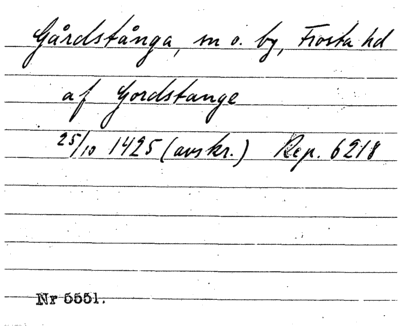 Gårdstånga, sn o. by, Frosta hd
af Gordstange
25/10 1425 (avskr.) Rep. 6218
Nr 5551.